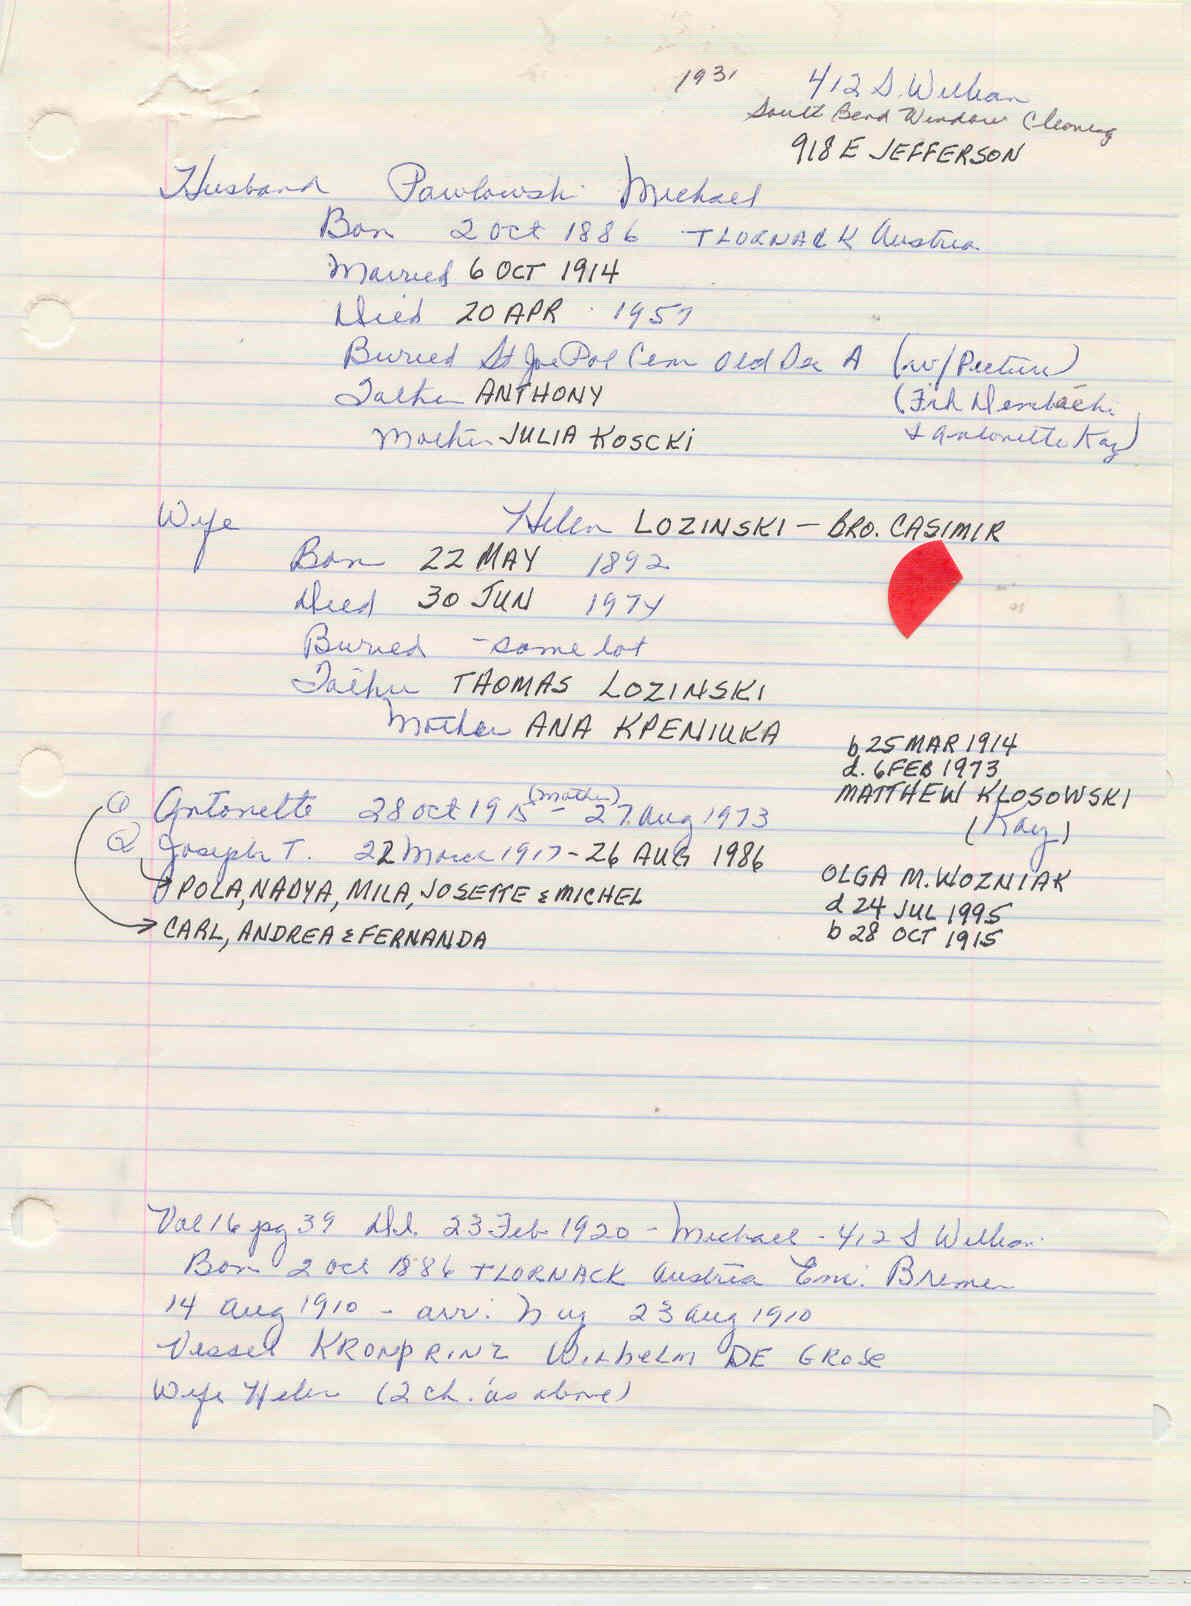 1931 412 S. William
South Bend Window Cleaning
918 E JEFFERSON
Husband Pawlowski Michael
Born 2 Oct 1886 TLORNACK Austria
Married 6 OCT 1914
Died 20 APR 1957
Buried St Joe Pol Cem Old Sec A (w/Picture)
Father ANTHONY (Frk Dembecki
Mother JULIA KOSCKI & Antonette Kay)
Wife Helen LOZINSKI - BRO. CASIMIR
Born 22 MAY 1892
Died 30 JUN 1974
Buried - same lot
Father THOMAS LOZINSKI
Mother ANA KPENIUKA
b 25 MAR 1914
d. 6 FEB 1973
MATTHEW KLOSOWSKI
(Kay)
① Antonette 28 Oct 1915 (Mother) - 27 Aug 1973
② Joseph T. 22 March 1917 - 26 AUG 1986
OLGA M. WOZNIAK
d 24 JUL 1995
b 28 OCT 1915
POLA, NADYA, MILA, JOSETTE & MICHEL
CARL, ANDREA & FERNANDA
Vol 16 pg 39 Dd. 23 Feb 1920 - Michael - 412 S William
Born 2 Oct 1886 TLORNACK Austria Emi. Bremen
14 Aug 1910 - arr. N Y 23 Aug 1910
Vessel KRONPRINZ WILhELM DE GROSE
Wife Helen (2 ch. as above)